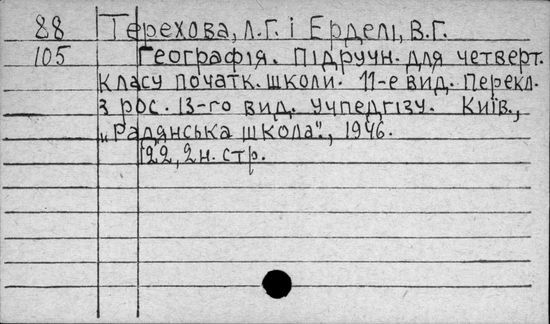 88 Терехова, Л.Г. і Ерделі, В.Г.
105 Географія. Підручн. для четверт.
класу початк. школи. 11-е вид. Перекл.
з рос. 13-го вид. Учпедгізу. Київ.,
„Радянська школа", 1946.
122, 2н. стр.